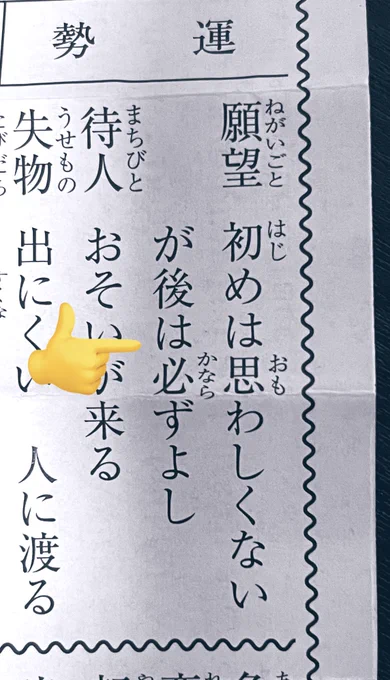 運勢
ねがいごと はじ おも
願望 初めは思わしくない
かなら
が後は必ずよし
まちびと
待人 おそいが来る
うせもの
失物 出にくい 人に渡る